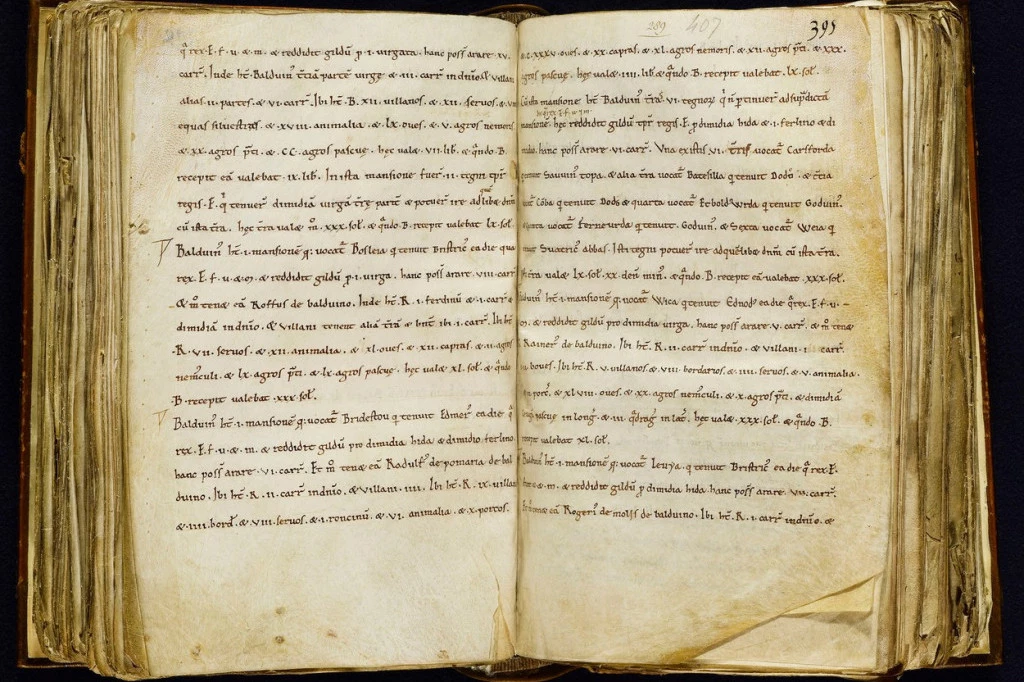 q̃ rex.E.f.u.&.m. & reddidit gildũ p̃.i.uirgata. hanc poss̃ arare xv.
carr̃. Inde ht̃ Balduin' t̃ciã partẽ uirgę & .iii. carr̃ indnĩo & uillani
alias .ii. partes. & vi. carr̃. Ibi ht̃ .B. XII. uillanos. & .XII. seruos. &
equas siluestras & XVIII. animalia. & LX. oues. & V. agros nemoris
& .XX. agros p̃ti. & CC. agros pascuę. hęc ualẽ .VII. lib̃. & q̃ndo .B.
recepit eã ualebat .IX. lib̃. In ista mansione fuer̃ .II. tegni tp̃r
regis .E. q̃ tenuer̃ dimidiã uirgã t̃rę partẽ & potuer̃ ire ad q̃libẽ dnm̃
cũ ista t̃ra. hęc t̃ra ualẽ m̃ .XXX. sol̃. & q̃ndo .B. recepit ualebat LX. sol̃.
Balduin' ht̃ .i. mansionẽ q̨ uocat̃ Bosleia q̨ tenuit Bristric' ea die qua
rex .E.f.u.&.m. & reddidit gildũ p̃.i. uirga. hanc poss̃ arare .VIII. carr̃
& m̃ tenẽ eã Roffus de balduino. Inde ht̃ .R.i. ferdinũ & .i. carr̃ &
dimidiã indnĩo. & uillani tenent aliã t̃rã & hnt̃ ibi .i. carr̃. Ibi ht̃
.R. VII. seruos. & XII. animalia. & XL. oues. & XII. capras. & .II. agros
nem̃culi. & LX. agros p̃ti. & LX. agros pascuę. hęc ualẽ XL. sol̃. & q̃ndo
.B. recepit ualebat .XXX. sol̃.
Balduin' ht̃ .i. mansionẽ q̨ uocat̃ Bridestou q̨ tenuit Edmer' ea die q̃
rex .E.f.u.&.m. & reddidit gildũ pro dimidia hida & dimidio ferlino
hanc poss̃ arare .VI. carr̃. Et m̃ tenẽ eã Radulf' de pomaria de bal
duino. Ibi ht̃ .R. II. carr̃ indnĩo. & uillani .IIII. Ibi ht̃ .R. IX. uillan
& .IIII. bord̃. & VIII. seruos. & .I. roncinũ. & VI. animalia. & X. porcos.
289 407 395
& .C.XXXV. oues. & XX. capras. & XL. agros nemoris. & XII. agros p̃ti. & XXX.
agros pascuę. hęc ualẽ .IIII. lib̃. & q̃ndo .B. recepit ualebat. LX. sol̃.
mansione ht̃ Balduin' t̃rã .VI. tegnorũ q̃ ñ p̃tinuer̃ ad sup̃dictã
mansionẽ. hęc reddidit gildũ tp̃r regis .E. p̃ dimidia hida & .i. ferlino & di
midio. hanc poss̃ arare .VI. carr̃. Vna ex istis .VI. t̃ris uocat̃ Carsforda
Sauuin' topa. & alia t̃ra uocat̃ Batesilla q̨ tenuit Dodo. & t̃cia
uocat̃ Cõba q̨ tenuit Dodo & quarta uocat̃ Etboldus Wrda q̨ tenuit Goduin'.
uocat̃ Ferneurda q̨ tenuit. Goduin'. & Sexta uocat̃ Weia q̨
Suatric' abbas. Isti tegni potuer̃ ire ad quẽlib̃ dnm̃ cũ ista t̃ra.
t̃ra ualẽ LX. sol̃. XX. deñ min'. & q̃ndo .B. recepit eã ualebat .XXX. sol̃.
Balduin' ht̃ .i. mansionẽ q̨ uocat̃ Wica q̨ tenuit Ednod' ea die q̃ rex .E.f.u.
& reddidit gildũ pro dimidia uirga. hanc poss̃ arare .V. carr̃. & m̃ tenẽ
Rainer' de balduino. Ibi ht̃ .R. II. carr̃ indnĩo & uillani carr̃.
boues. Ibi ht̃ .R. V. uillanos & VIII. bordarios. & IIII. seruos. & V. animalia.
porc̃. & XLVIII. oues. & XX. agros nem̃culi. & X. agros p̃ti. & dimidiã
pascuę in long̃. & .III. q̃drag̃ in lat̃. hęc ualẽ .XXX. sol̃. & q̃ndo .B.
recepit ualebat XL. sol̃.
Balduin' ht̃ .i. mansionẽ q̨ uocat̃ Leuya. q̨ tenuit Bristric' ea die q̃ rex .E.
& .m. & reddidit gildũ p̃ dimidia hida. hanc poss̃ arare. VII. carr̃.
tenẽ eã Roger' de molis de balduino. Ibi ht̃ .R.i. carr̃ indnĩo. &